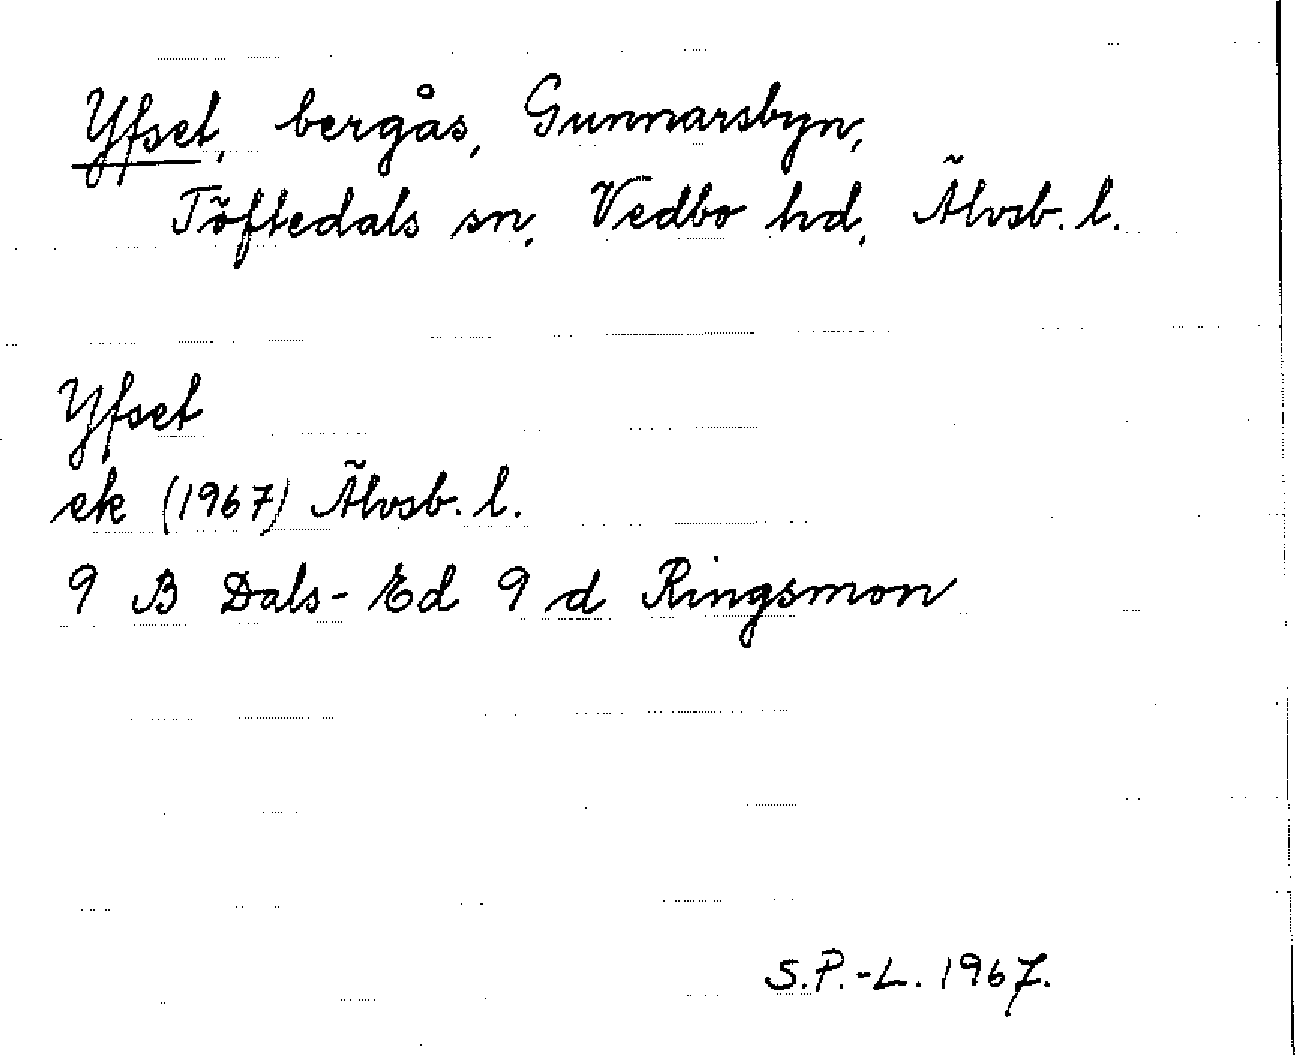 Yfset, bergås, Gunnarsbyn,
Töftedals sn, Vedbo hd, Älvsb. l.
Yfset
ek (1967) Älvsb. l.
9 B Dals-Ed 9 d Ringsmon
S.P.-L. 1967.